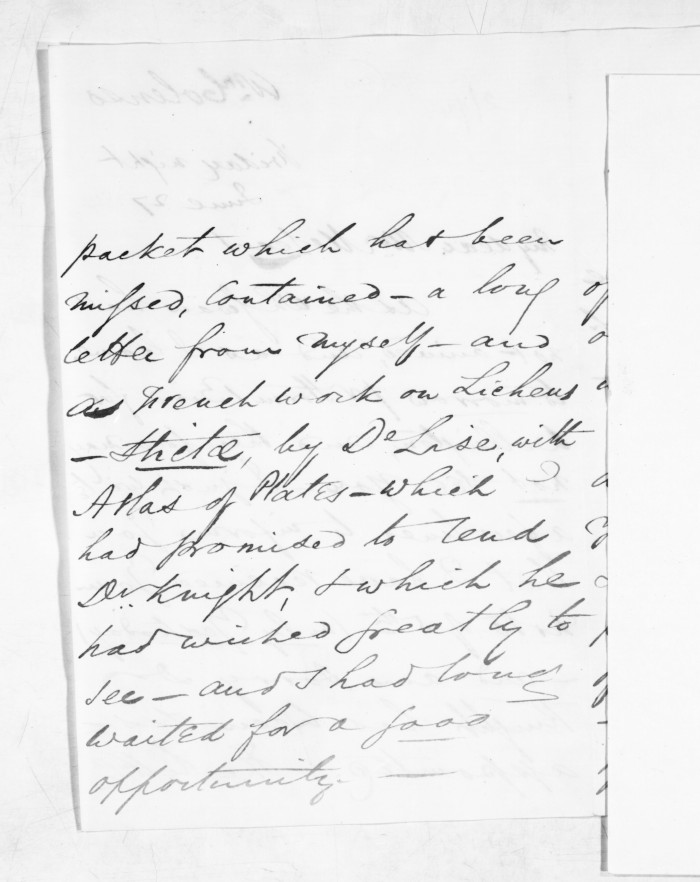 packet which has been
missed, contained – a long
letter from myself – and
a French work on Lichens
– Stictæ, by De Lise, with
Atlas of Plates – which I
had promised to lend
Dr. Knight, & which he
had wished greatly to
see – and I had long
waited for a good
opportunity. —